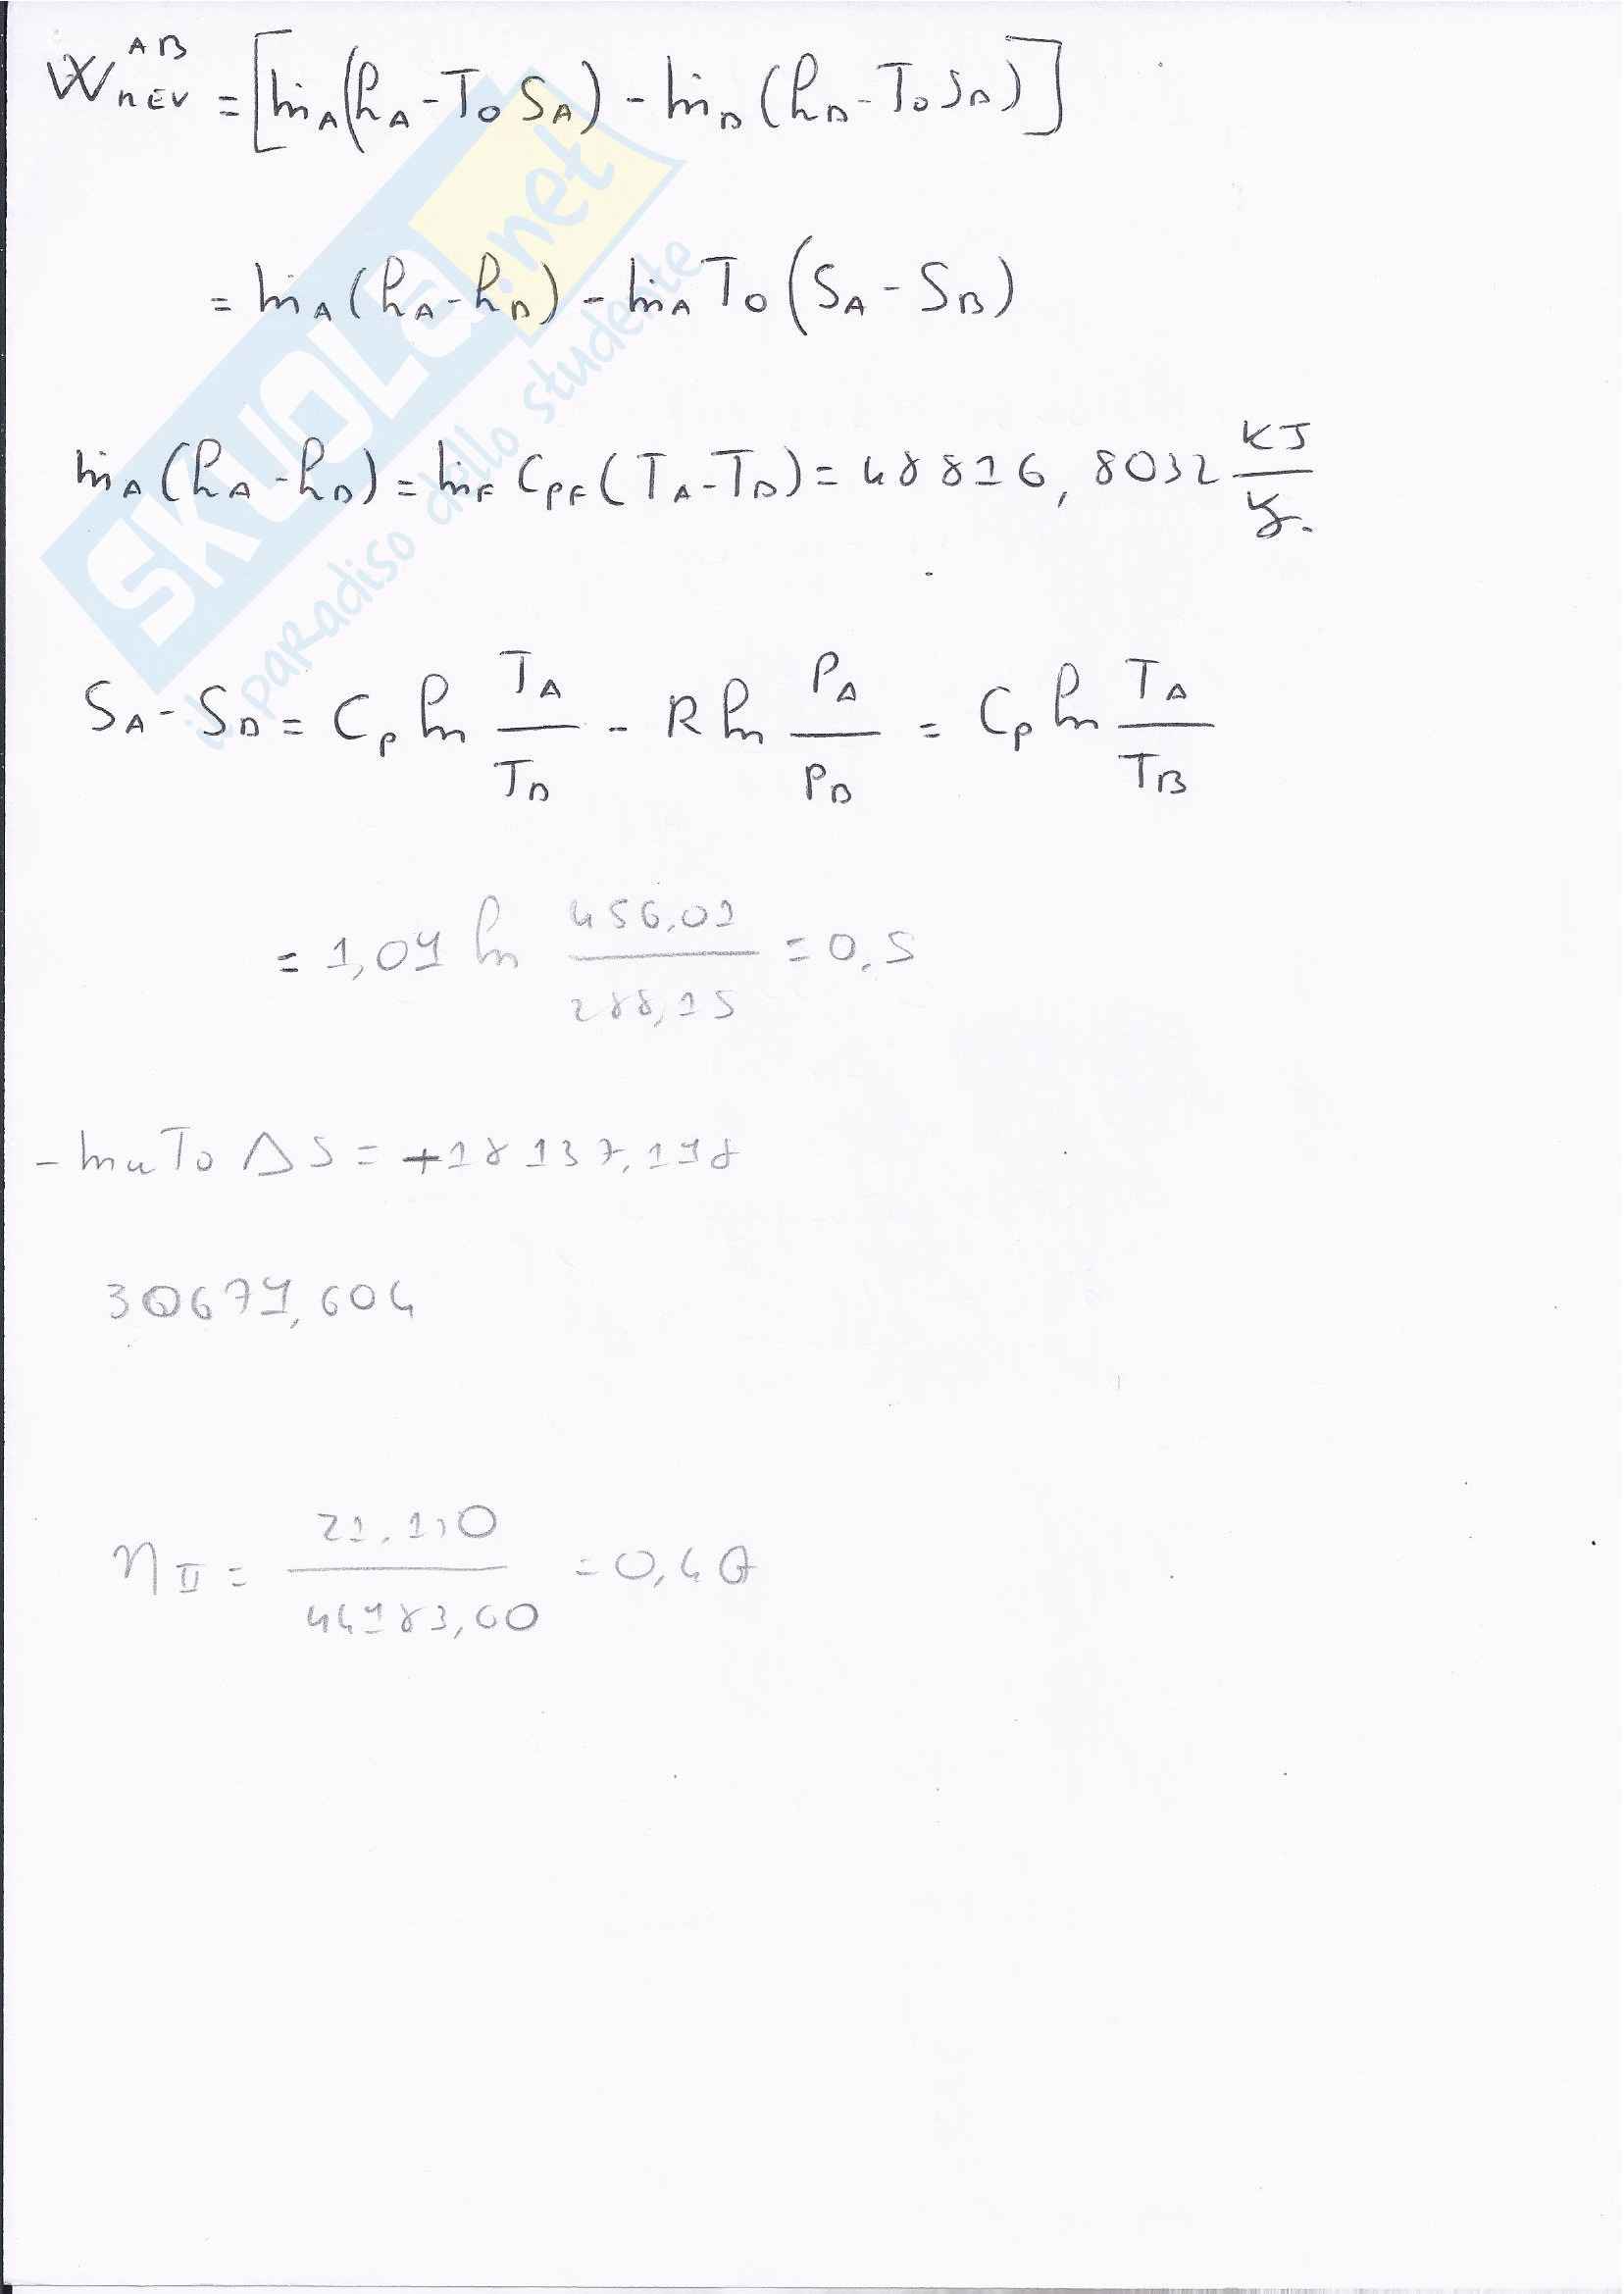 W_REV^AB = [ṁ_A(h_A - T_0 S_A) - ṁ_B(h_B - T_0 S_B)]
= ṁ_A(h_A - h_B) - ṁ_A T_0 (S_A - S_B)
ṁ_A(h_A - h_B) = ṁ_F C_PF (T_A - T_B) = 48816,8032 KJ/
S_A - S_B = C_p ln T_A/T_B - R ln P_A/P_B = C_p ln T_A/T_B
= 1,09 ln 456,01/288,15 = 0,5
- T_0 ΔS = +18137,198
30679,604
η_II = / = 0,4
SKUOLA.net
il paradiso dello studente